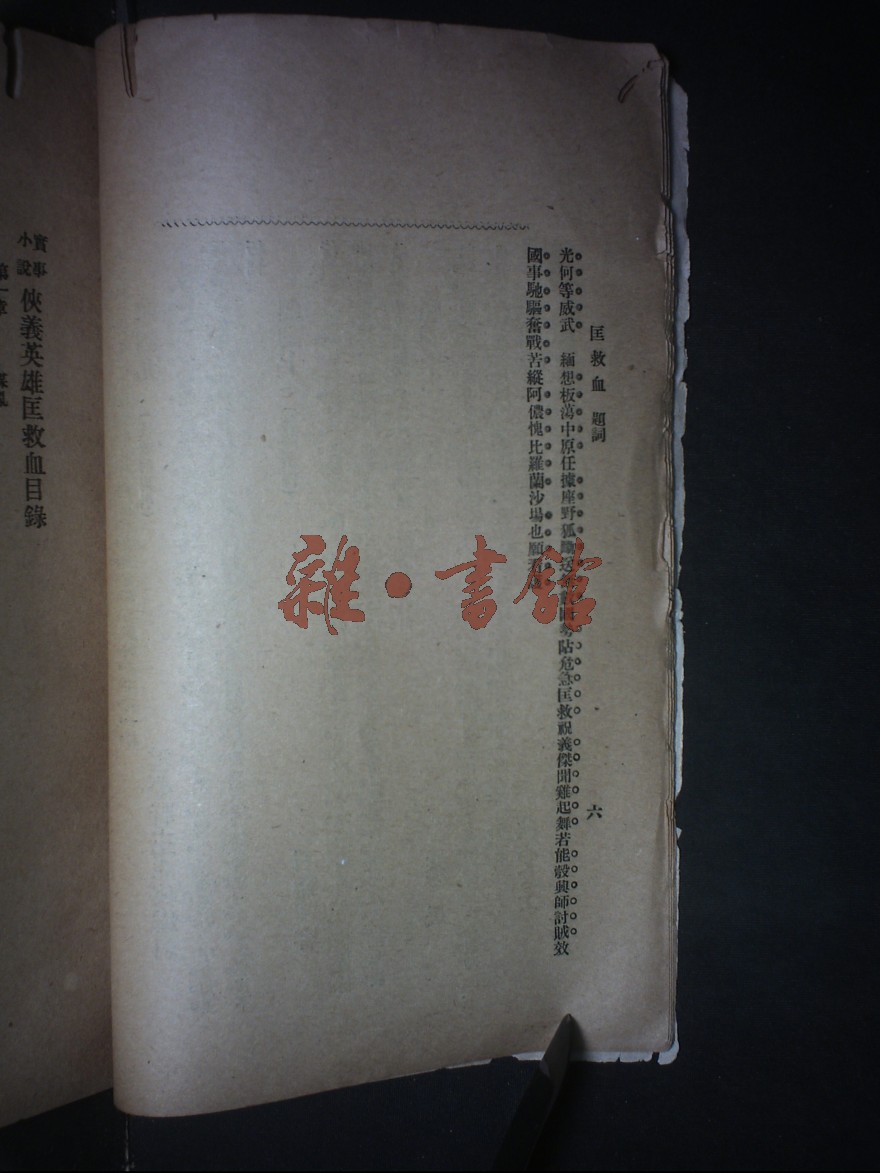 匡救血 題詞 六
光何等威武 緬想板蕩中原任據座野狐 阽危急匡救祝義傑聞雞起舞若能彀興師討賊效
國事馳驅奮戰苦縱阿儂愧比羅蘭沙場也願
實事小說 俠義英雄匡救血目錄
第一章
雜·書館